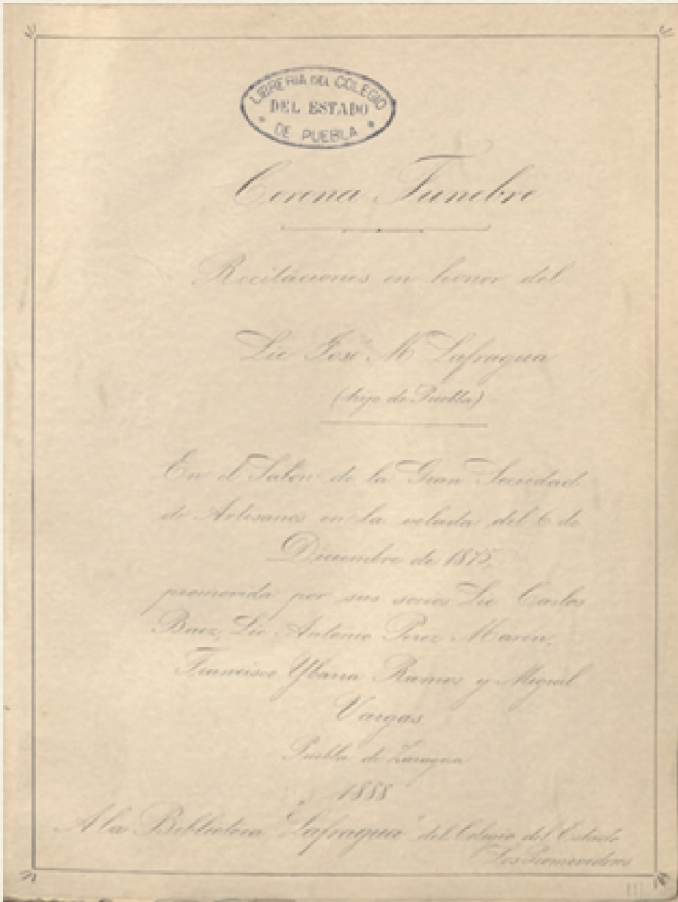 LIBRERIA DEL COLEGIO
DEL ESTADO
* DE PUEBLA *
Corona Fúnebre
Recitaciones en honor del
Lic José M Lafragua
(hijo de Puebla)
En el Salón de la Gran Sociedad
de Artesanos en la velada del 6 de
Diciembre de 1875,
promovida por sus socios Lic Carlos
Baez, Lic Antonio Perez Marin,
Francisco Ybarra Ramos y Miguel
Vargas
Puebla de Zaragoza
1888
A la Biblioteca "Lafragua" del Colegio del Estado
Los Promovedores